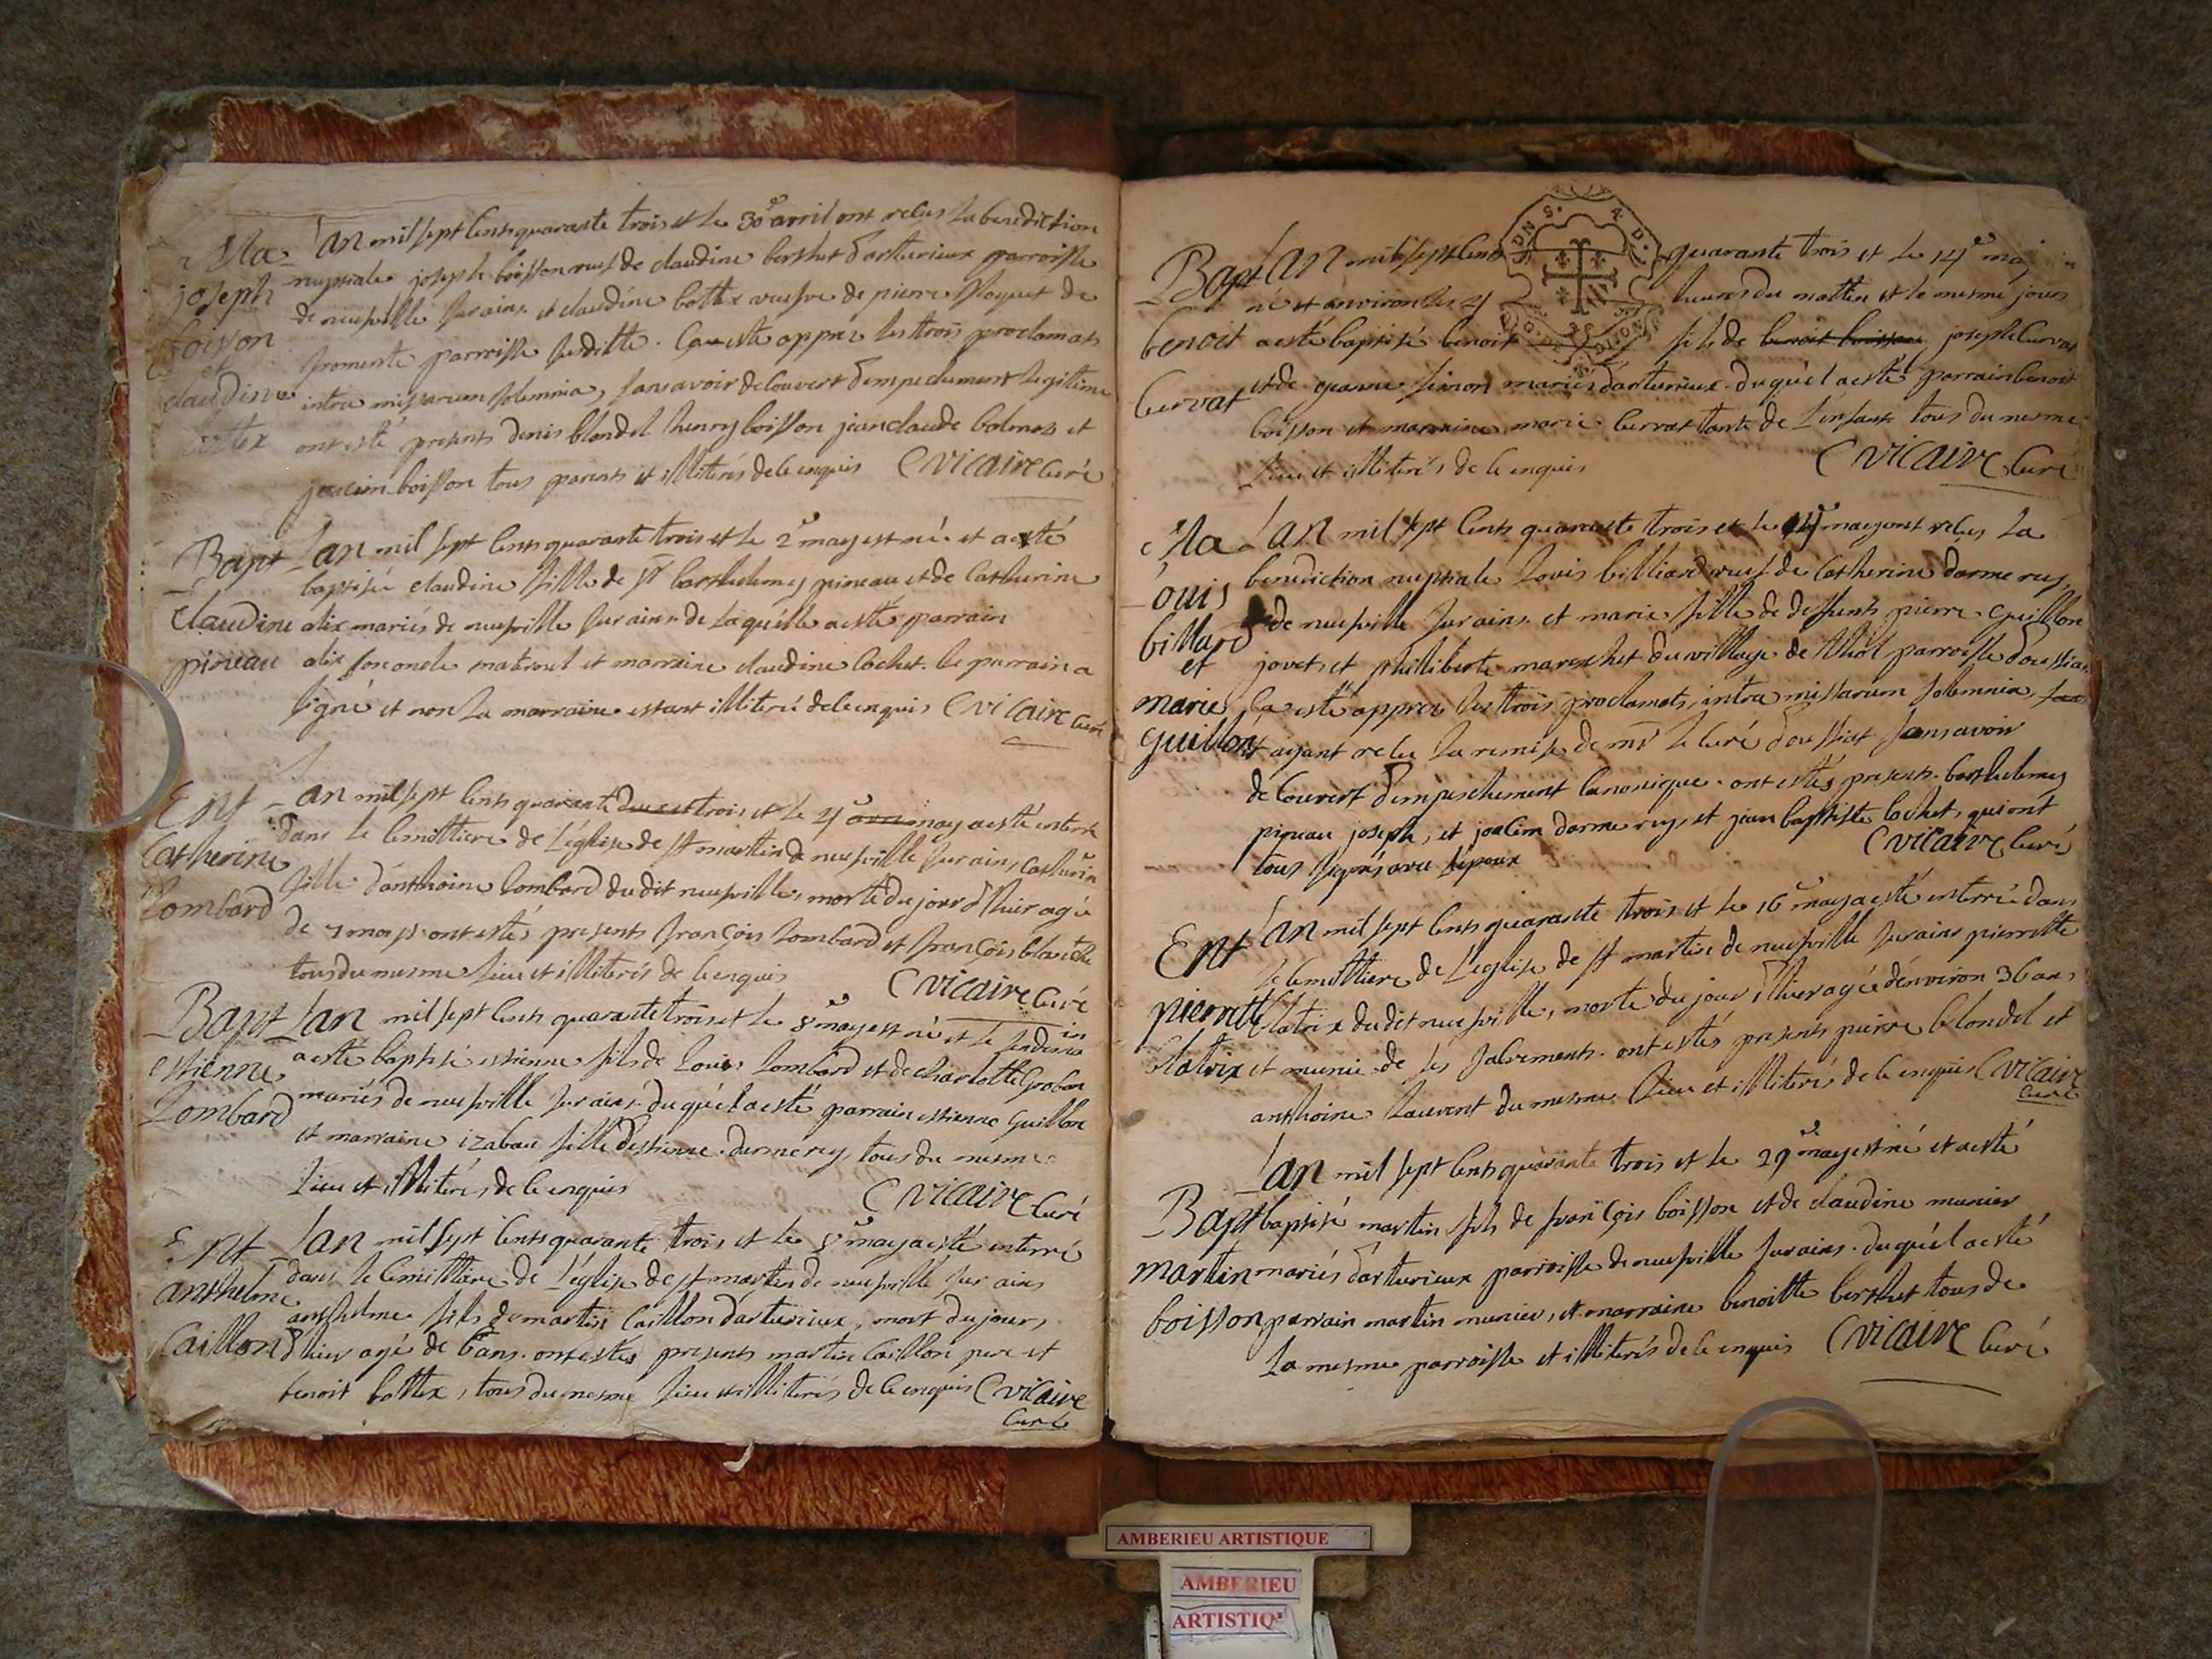 Ma
joseph
boisson
et
claudine
bottex
Lan mil sept cents quarante trois et le 30e avril ont reçus la benediction
nuptiale joseph boisson veuf de claudine berthet d'arturieux parroisse
de neufville sur ains et claudine bottex veufve de pierre de
fromente parroisse suditte. Ca esté apprez les trois proclamats
intra missarum solemnia, sans avoir decouvert d'empechement legitime
ont esté presents denis blondel henry boisson jean claude balmes et
joacim boisson tous parents et illiterés de ce enquis C vicaire curé
Bapt
claudine
pineau
Lan mil sept cents quarante trois et le 2e may est née et a esté
baptisée claudine fille de sr barthelemy pineau et de catherine
alix mariés de neufville sur ains de laquélle a esté parrain
alix son oncle maternel et marraine claudine cochet. le parrain a
signé et non la marraine estant illiterée de ce enquis C vicaire curé
Ent
Catherine
Lombard
Lan mil sept cents quarante trois et le may a esté enterré
dans le cimittiere de l'église de st martin de neufville sur ains, catherine
fille d'anthoine Lombard du dit neufville, morte du jour d'hier agée
de 7 mois. ont estés presents françois Lombard et françois
tous du mesme lieu et illiterés de ce enquis C vicaire curé
Bapt
estienne
Lombard
Lan mil sept cents quarante trois et le 8e may est né et le lendemain
a esté baptisé estienne fils de Louis Lombard et de charlotte Groban
mariés de neufville sur ains. du quél a esté parrain estienne Guillon
et marraine izabau fille d'estienne darmerey tous du mesme
lieu et illiterés de ce enquis C vicaire curé
Ent
anthelme
Caillon
Lan mil sept cents quarante trois et le 8e may a esté enterré
dans le cimittiere de l'église de st martin de neufville sur ains
anthelme fils de martin Caillon d'arturieux, mort du jour
d'hier agé de 6 ans. ont estés presents martin Caillon pere et
benoit bottex, tous du mesme lieu et illiterés de ce enquis C vicaire
curé
Bapt
benoit
Curvat
Lan mil sept cents quarante trois et le 14e may
né et environ les heures du mattin et le mesme jour
a esté baptisé benoit fils de benoit boisson joseph Curvat
et de mariés d'arturieux. du quél a esté parrain benoit
boisson et marraine marie Curvat tante de l'enfant tous du mesme
lieu et illiterés de ce enquis C vicaire curé
Ma
Louis
billiard
et
marie
guillon
Lan mil sept cents quarante trois et le may ont reçus la
benediction nuptiale Louis billiard veuf de Catherine darmerey
de neufville sur ains. et marie fille de deffunts pierre guillon
jovet, et philiberte mareschet du village de thol parroisse d'oussiat
Ca esté apprez les trois proclamats, intra missarum solemnia,
et ayant recu la remise de mr le curé d'oussiat sans avoir
decouvert d'empeschement canonique. ont estés presents. barthelemy
pineau joseph, et joacim darmerey, et jean baptiste cochet, qui ont
tous signés avec l'epoux C vicaire curé
Ent
pierrette
Clatrix
Lan mil sept cents quarante trois et le 16e may a esté enterrée dans
le cimittiere de l'eglise de st martin de neufville sur ains pierrette
Clatrix du dit neufville, morte du jour d'hier agée d'environ 36 ans
et munie de ses sacrements. ont estés presents pierre blondel et
anthoine Laurent du mesme lieu et illiterés de ce enquis C vicaire
curé
Bapt
martin
boisson
Lan mil sept cents quarante trois et le 29e may est né et a esté
baptisé martin fils de françois boisson et de claudine munier
mariés d'arturieux parroisse de neufville sur ains. du quél a esté
parrain martin munier, et marraine benoitte berthet tous de
la mesme parroisse et illiterés de ce enquis C vicaire curé
AMBERIEU ARTISTIQUE
AMBERIEU
ARTISTIQ